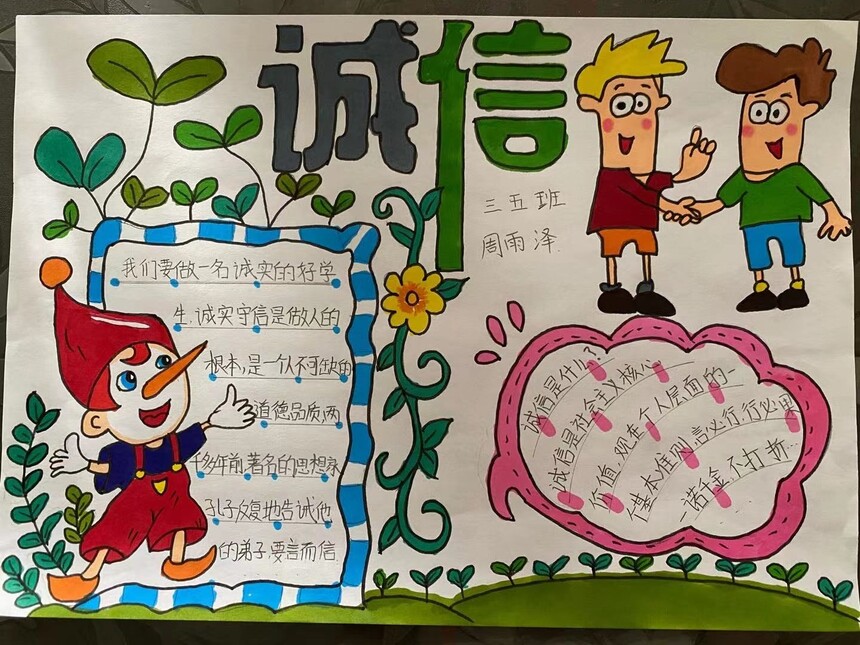 诚信
三五班
周雨泽
我们要做一名诚实的好学
生,诚实守信是做人的
根本,是一个人不可缺的
道德品质,两
千多年前,著名的思想家
孔子反复地告诫他
的弟子,要言而信
诚信是什么?
诚信是社会主义核心
价值,观在个人层面的一
个基本准则,言必行,行必果
一诺千金,不打折…